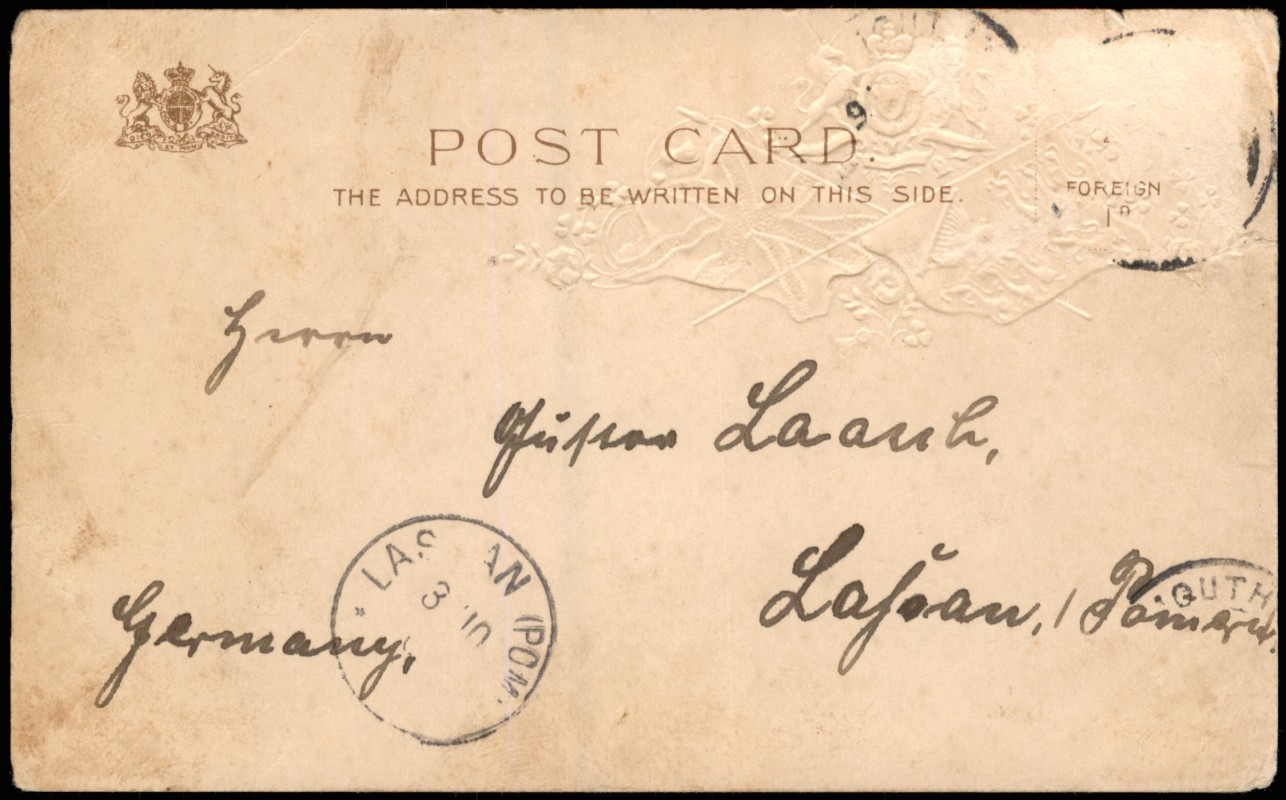 POST CARD.
THE ADDRESS TO BE WRITTEN ON THIS SIDE.
FOREIGN
1D
Herrn
Gustav Laasch,
LASSAN (POM.
3 10
Lassan, / Pomern.
OUTH
Germany,